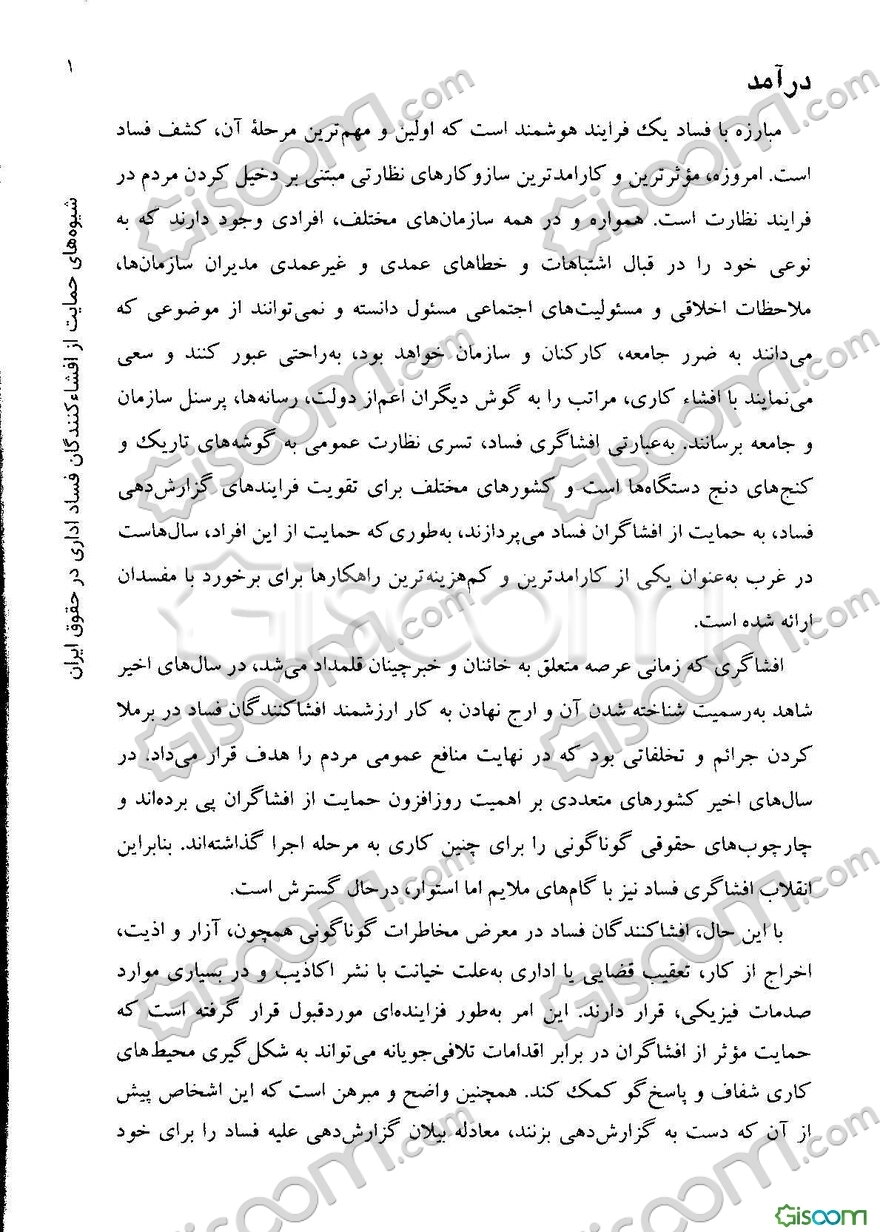 ۱
درآمد
مبارزه با فساد یک فرایند هوشمند است که اولین و مهم‌ترین مرحلهٔ آن، کشف فساد
است. امروزه، مؤثرترین و کارامدترین سازوکارهای نظارتی مبتنی بر دخیل کردن مردم در
فرایند نظارت است. همواره و در همه سازمان‌های مختلف، افرادی وجود دارند که به
نوعی خود را در قبال اشتباهات و خطاهای عمدی و غیرعمدی مدیران سازمان‌ها،
ملاحظات اخلاقی و مسئولیت‌های اجتماعی مسئول دانسته و نمی‌توانند از موضوعی که
می‌دانند به ضرر جامعه، کارکنان و سازمان خواهد بود، به‌راحتی عبور کنند و سعی
می‌نمایند با افشاء کاری، مراتب را به گوش دیگران اعم‌از دولت، رسانه‌ها، پرسنل سازمان
و جامعه برسانند. به‌عبارتی افشاگری فساد، تسری نظارت عمومی به گوشه‌های تاریک و
کنج‌های دنج دستگاه‌ها است و کشورهای مختلف برای تقویت فرایندهای گزارش‌دهی
فساد، به حمایت از افشاگران فساد می‌پردازند، به‌طوری‌که حمایت از این افراد، سال‌هاست
در غرب به‌عنوان یکی از کارامدترین و کم‌هزینه‌ترین راهکارها برای برخورد با مفسدان
ارائه شده است.
افشاگری که زمانی عرصه متعلق به خائنان و خبرچینان قلمداد می‌شد، در سال‌های اخیر
شاهد به‌رسمیت شناخته شدن آن و ارج نهادن به کار ارزشمند افشاکنندگان فساد در برملا
کردن جرائم و تخلفاتی بود که در نهایت منافع عمومی مردم را هدف قرار می‌داد. در
سال‌های اخیر کشورهای متعددی بر اهمیت روزافزون حمایت از افشاگران پی برده‌اند و
چارچوب‌های حقوقی گوناگونی را برای چنین کاری به مرحله اجرا گذاشته‌اند. بنابراین
انقلاب افشاگری فساد نیز با گام‌های ملایم اما استوار، درحال گسترش است.
با این حال، افشاکنندگان فساد در معرض مخاطرات گوناگونی همچون، آزار و اذیت،
اخراج از کار، تعقیب قضایی یا اداری به‌علت خیانت با نشر اکاذیب و در بسیاری موارد
صدمات فیزیکی، قرار دارند. این امر به‌طور فزاینده‌ای موردقبول قرار گرفته است که
حمایت مؤثر از افشاگران در برابر اقدامات تلافی‌جویانه می‌تواند به شکل‌گیری محیط‌های
کاری شفاف و پاسخ‌گو کمک کند. همچنین واضح و مبرهن است که این اشخاص پیش
از آن که دست به گزارش‌دهی بزنند، معادله بیلان گزارش‌دهی علیه فساد را برای خود
شیوه‌های حمایت از افشاءکنندگان فساد اداری در حقوق ایران
Gisoom.com
Gisoom